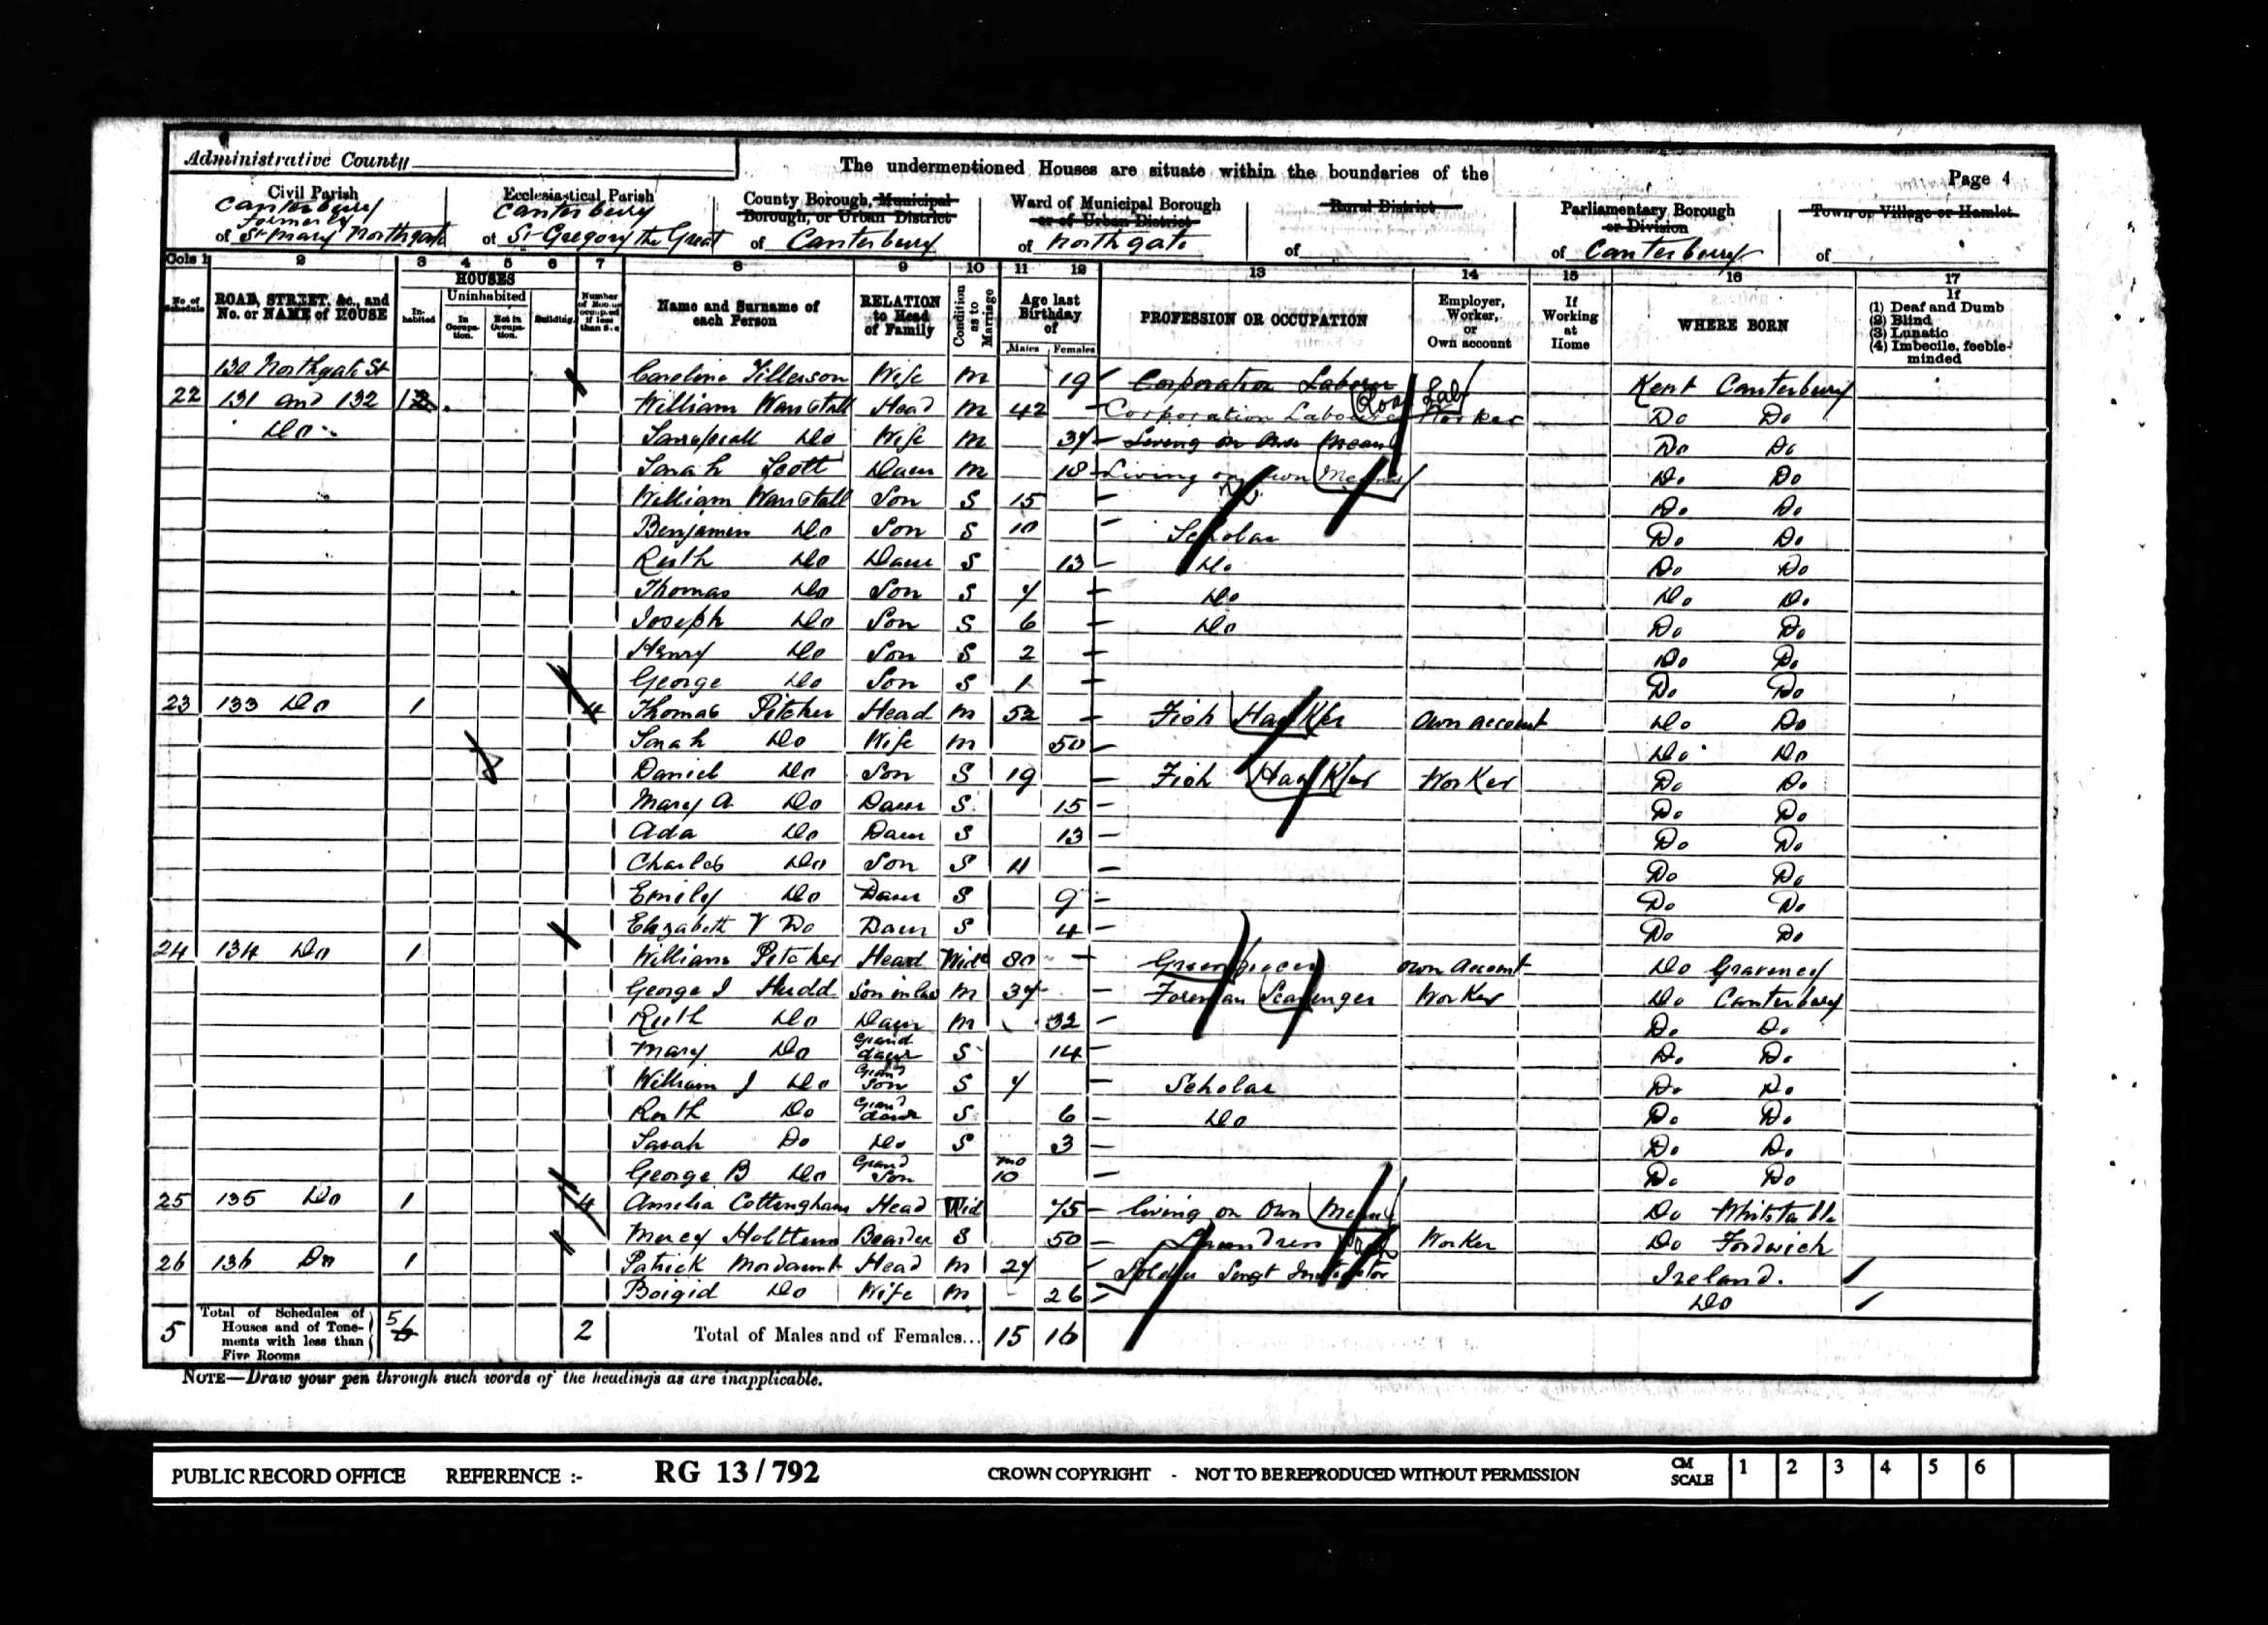 Administrative County
The undermentioned Houses are situate within the boundaries of the
Page 4
Civil Parish
Canterbury
formerly
of St Mary Northgate
Ecclesiastical Parish
Canterbury
of St Gregory the Great
County Borough, Municipal
Borough, or Urban District
of Canterbury
Ward of Municipal Borough
or of Urban District
of Northgate
Rural District
of
Parliamentary Borough
or Division
of Canterbury
Town or Village or Hamlet
of
Cols 1 2 3 4 5 6 7 8 9 10 11 12 13 14 15 16 17
No. of Schedule
ROAD, STREET, &c., and
No. or NAME of HOUSE
HOUSES
In-habited
Uninhabited
In Occupa-tion.
Not in Occupa-tion.
Building.
Number of Rooms occupied if less than five
Name and Surname of
each Person
RELATION
to Head
of Family
Condition as to Marriage
Age last
Birthday
of
Males Females
PROFESSION OR OCCUPATION
Employer,
Worker,
or
Own account
If
Working
at
Home
WHERE BORN
If
(1) Deaf and Dumb
(2) Blind
(3) Lunatic
(4) Imbecile, feeble-
minded
130 Northgate St Caroline Tillerson Wife M 19 Corporation Labourer Kent Canterbury
22 131 and 132 William Wanstall Head M 42 Corporation Labourer Road Lab Worker Do Do
Do Do Wife M 37 Living on Own Means Do Do
Sarah Scott Daur M 18 Living on Own Means Do Do
William Wanstall Son S 15 Do Do
Benjamin Do Son S 10 Scholar Do Do
Ruth Do Daur S 13 Do Do Do
Thomas Do Son S 7 Do Do Do
Joseph Do Son S 6 Do Do Do
Henry Do Son S 2 Do Do
George Do Son S 1 Do Do
23 133 Do 1 4 Thomas Pitcher Head M 52 Fish Hawker Own account Do Do
Sarah Do Wife M 50 Do Do
Daniel Do Son S 19 Fish Hawker Worker Do Do
Mary A Do Daur S 15 Do Do
Ada Do Daur S 13 Do Do
Charles Do Son S 11 Do Do
Emily Do Daur S 9 Do Do
Elizabeth V Do Daur S 4 Do Do
24 134 Do 1 William Pitcher Head Widr 80 Greengrocer Own account Do Graveney
George J Hudd Son in law M 37 Foreman Scavenger Worker Do Canterbury
Ruth Do Daur M 32 Do Do
Mary Do Grand daur S 14 Do Do
William J Do Grand Son S 7 Scholar Do Do
Ruth Do Grand daur S 6 Do Do Do
Sarah Do Do S 3 Do Do
George B Do Grand Son mo 10 Do Do
25 135 Do 1 4 Amelia Cottingham Head Wid 75 Living on Own Means Do Whitstable
Mercy Boarder S 50 Laundress Worker Do Fordwich
26 136 Do 1 Patrick Mordaunt Head M 27 Soldier Sergt Instructor Ireland.
Brigid Do Wife M 26 Do
5 Total of Schedules of
Houses and of Tene-
ments with less than
Five Rooms 5 2 Total of Males and of Females... 15 16
NOTE—Draw your pen through such words of the headings as are inapplicable.
PUBLIC RECORD OFFICE REFERENCE :- RG 13 / 792 CROWN COPYRIGHT - NOT TO BE REPRODUCED WITHOUT PERMISSION CM SCALE 1 2 3 4 5 6